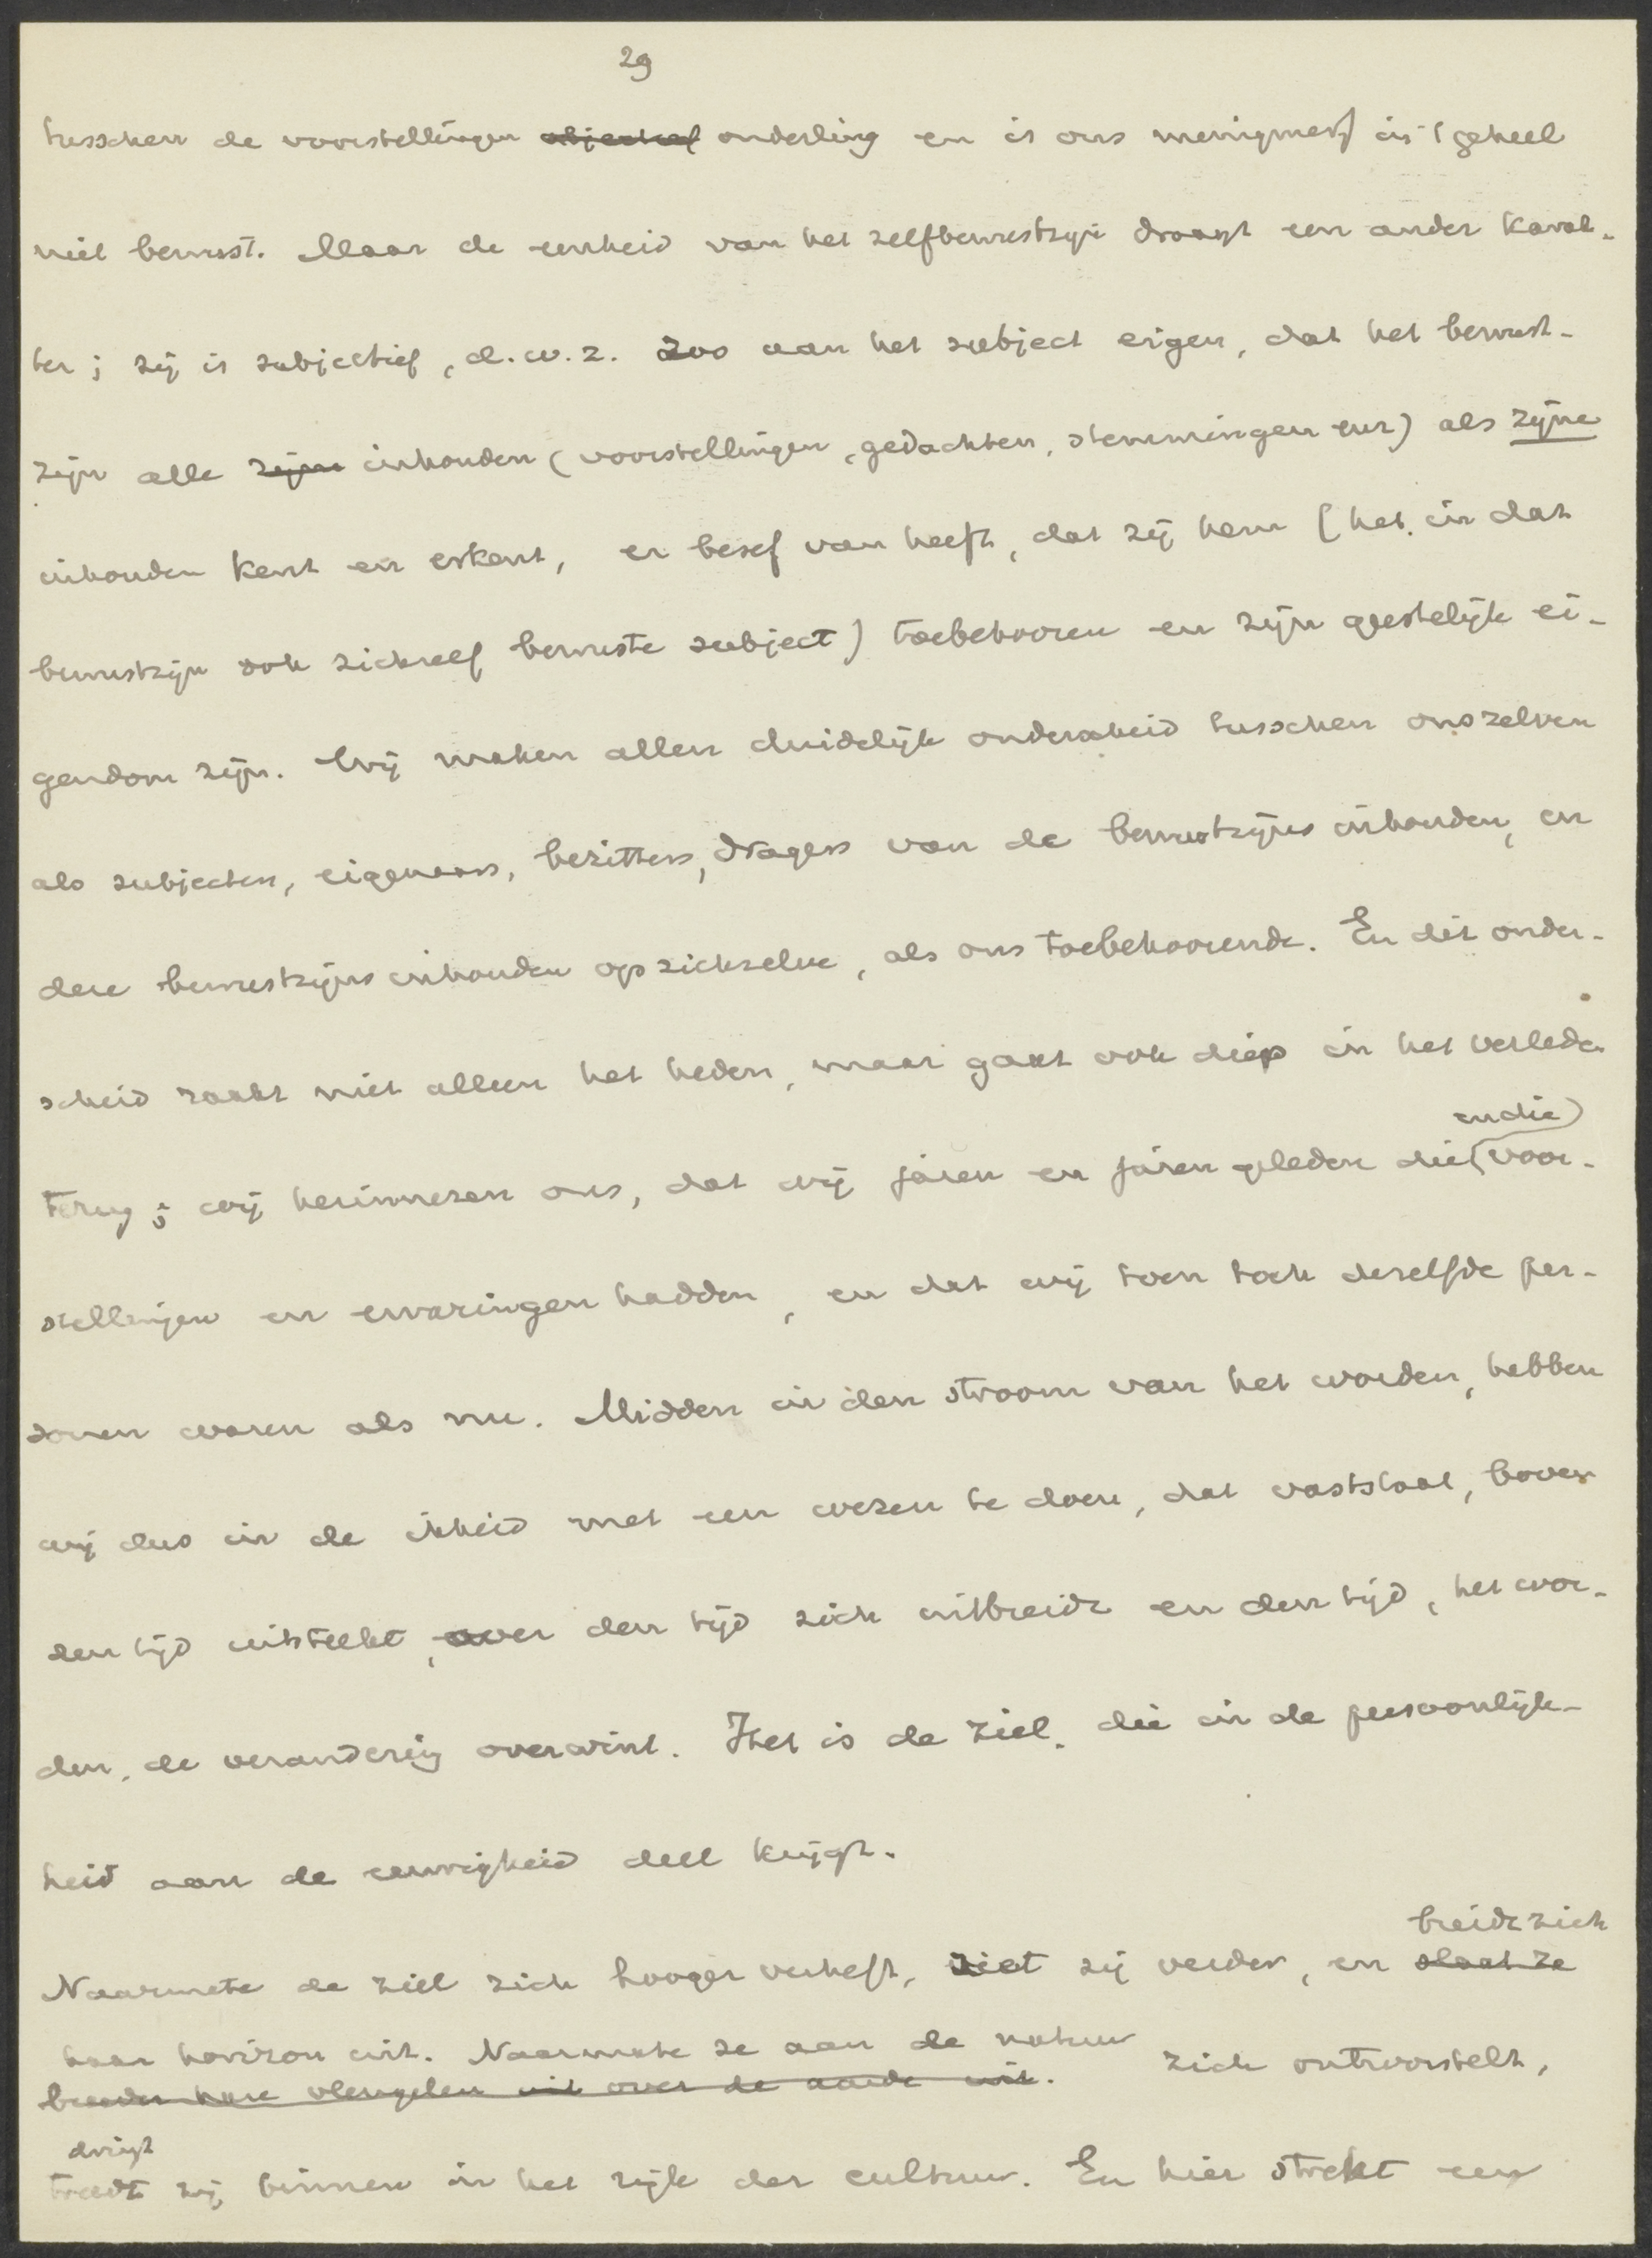 29
tusschen de voorstellingen objectief onderling en is ons menigmaal in 't geheel
niet bewust. Maar de eenheid van het zelfbewustzijn draagt een ander karak-
ter; zij is subjectief, d.w.z. zoo aan het subject eigen, dat het bewust-
zijn alle zijne inhouden (voorstellingen, gedachten, stemmingen enz) als zijne
inhouden kent en erkent, er besef van heeft, dat zij hem (het in dat
bewustzijn ook zichzelf bewuste subject) toebehooren en zijn geestelijk ei-
gendom zijn. Wij maken allen duidelijk onderscheid tusschen onszelven
als subjecten, eigenaars, bezitters, dragers van de bewustzijns inhouden, en
deze bewustzijns inhouden op zichzelve, als ons toebehoorende. En dit onder-
scheid raakt niet alleen het heden, maar gaat ook diep in het verleden
en die
terug; wij herinneren ons, dat wij jaren en jaren geleden die voor-
stellingen en ervaringen hadden, en dat wij toen toch dezelfde per-
sonen waren als nu. Midden in den stroom van het worden, hebben
wij dus in de ikheid met een wezen te doen, dat vaststaat, boven
den tijd uitsteekt, over den tijd zich uitbreidt en den tijd, het wor-
den, de verandering overwint. Het is de ziel, die in de persoonlijk-
heid aan de eeuwigheid deel krijgt.
breidt zich
Naarmate de ziel zich hooger verheft, ziet zij verder, en slaat ze
haar horizon uit. Naarmate ze aan de natuur zich ontworstelt,
breeder hare vleugelen uit over de aarde uit.
dringt
treedt zij binnen in het rijk der cultuur. En hier strekt een